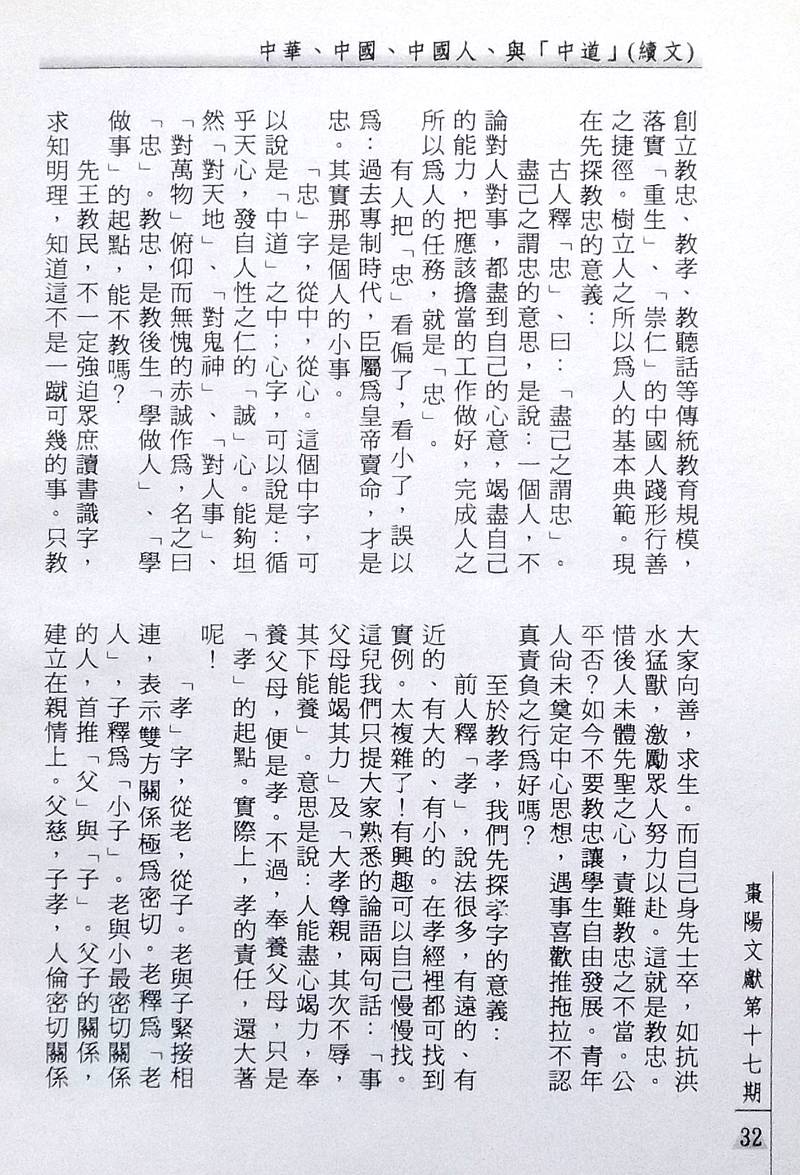 中華、中國、中國人、與「中道」(續文)
創立教忠、教孝、教聽話等傳統教育規模，
落實「重生」、「崇仁」的中國人踐形行善
之捷徑。樹立人之所以爲人的基本典範。現
在先探教忠的意義：
古人釋「忠」、曰：「盡己之謂忠」。
盡己之謂忠的意思，是說：一個人，不
論對人對事，都盡到自己的心意，竭盡自己
的能力，把應該擔當的工作做好，完成人之
所以爲人的任務，就是「忠」。
有人把「忠」看偏了，看小了，誤以
爲：過去專制時代，臣屬爲皇帝賣命，才是
忠。其實那是個人的小事。
「忠」字，從中，從心。這個中字，可
以說是「中道」之中；心字，可以說是：循
乎天心，發自人性之仁的「誠」心。能夠坦
然「對天地」、「對鬼神」、「對人事」、
「對萬物」俯仰而無愧的赤誠作爲，名之曰
「忠」。教忠，是教後生「學做人」、「學
做事」的起點，能不教嗎？
先王教民，不一定強迫眾庶讀書識字，
求知明理，知道這不是一蹴可幾的事。只教
大家向善，求生。而自己身先士卒，如抗洪
水猛獸，激勵眾人努力以赴。這就是教忠。
惜後人未體先聖之心，責難教忠之不當。公
平否？如今不要教忠讓學生自由發展。青年
人尚未奠定中心思想，遇事喜歡推拖拉不認
真責負之行爲好嗎？
至於教孝，我們先探孝字的意義：
前人釋「孝」，說法很多，有遠的、有
近的、有大的、有小的。在孝經裡都可找到
實例。太複雜了！有興趣可以自己慢慢找。
這兒我們只提大家熟悉的論語兩句話：「事
父母能竭其力」及「大孝尊親，其次不辱，
其下能養」。意思是說：人能盡心竭力，奉
養父母，便是孝。不過，奉養父母，只是
「孝」的起點。實際上，孝的責任，還大著
呢！
「孝」字，從老，從子。老與子緊接相
連，表示雙方關係極爲密切。老釋爲「老
人」，子釋爲「小子」。老與小最密切關係
的人，首推「父」與「子」。父子的關係，
建立在親情上。父慈，子孝，人倫密切關係
棗陽文獻第十七期
32